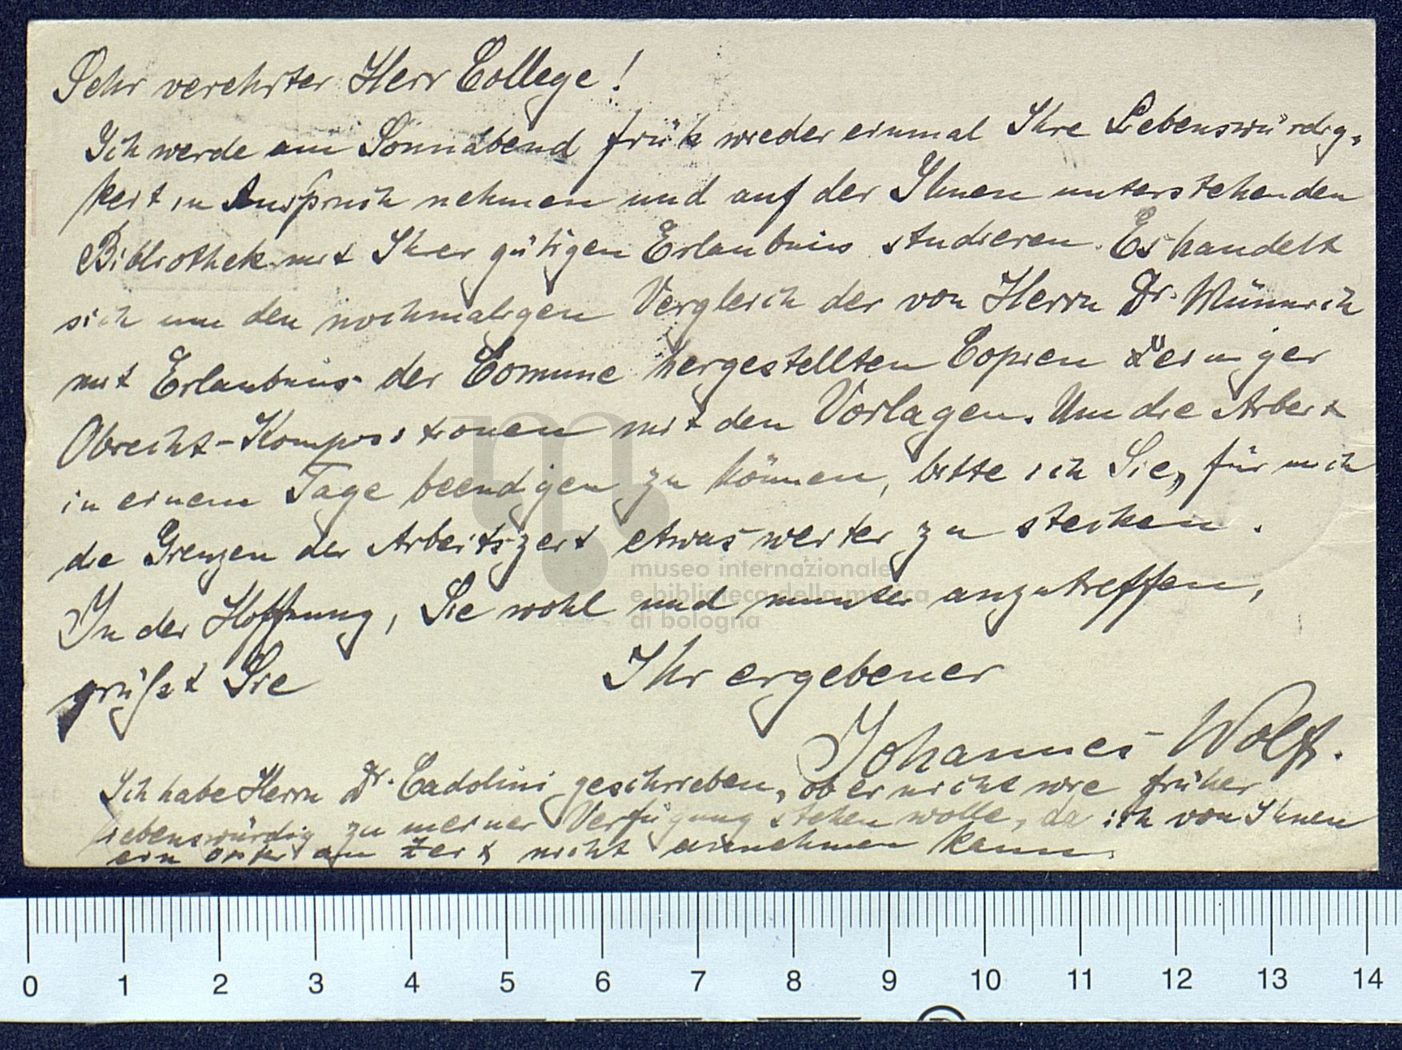 Sehr verehrter Herr College!
Ich werde am Sonnabend früh wieder einmal Ihre Liebenswürdig-
keit in Anspruch nehmen und auf der Ihnen unterstehenden
Bibliothek mit Ihrer gütigen Erlaubnis studieren. Es handelt
sich um den nochmaligen Vergleich der von Herrn Dr. Münnich
mit Erlaubnis der Comune hergestellten Copien einiger
Obrecht-Kompositionen mit den Vorlagen. Um die Arbeit
in einem Tage beendigen zu können, bitte ich Sie, für mich
die Grenzen der Arbeitszeit etwas weiter zu stecken.
In der Hoffnung, Sie wohl und munter anzutreffen,
grüßt Sie
Ihr ergebener
Johannes Wolf.
Ich habe Herrn Dr. Cadolini geschrieben, ob er nicht wie früher
liebenswürdig zu meiner Verfügung stehen wolle, da ich von Ihnen
ein Opfer an Zeit nicht annehmen kann.
museo internazionale
e biblioteca della musica
di bologna
0 1 2 3 4 5 6 7 8 9 10 11 12 13 14